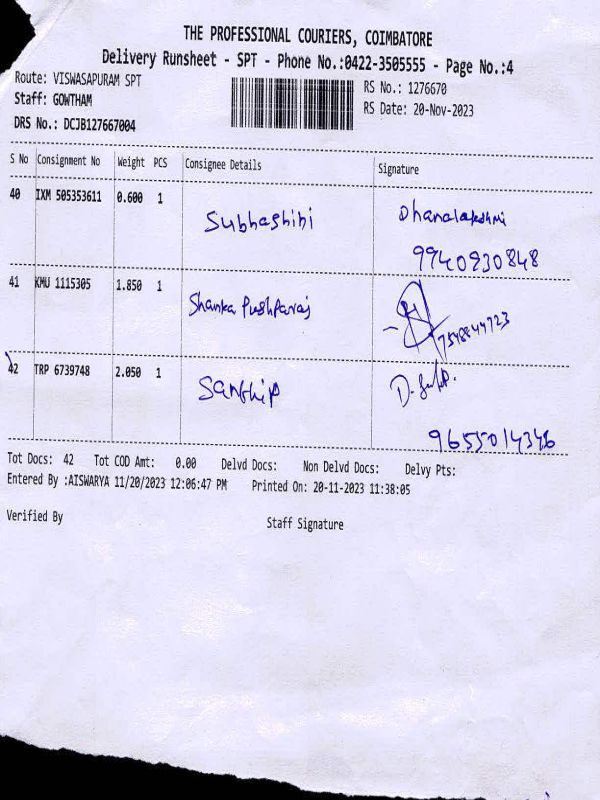 THE PROFESSIONAL COURIERS, COIMBATORE
Delivery Runsheet - SPT - Phone No.:0422-3505555 - Page No.:4
Route: VISWASAPURAM SPT
RS No.: 1276670
Staff: GOWTHAM
RS Date: 20-Nov-2023
DRS No.: DCJB127667004
S No Consignment No Weight PCS Consignee Details Signature
40 IXM 505353611 0.600 1 Subhashini Dhanalakshmi
9940830848
41 KMU 1115305 1.850 1 Shanka Pushparaj
7548844723
42 TRP 6739748 2.050 1 Santhip
9655014346
Tot Docs: 42 Tot COD Amt: 0.00 Delvd Docs: Non Delvd Docs: Delvy Pts:
Entered By :AISWARYA 11/20/2023 12:06:47 PM Printed On: 20-11-2023 11:38:05
Verified By Staff Signature